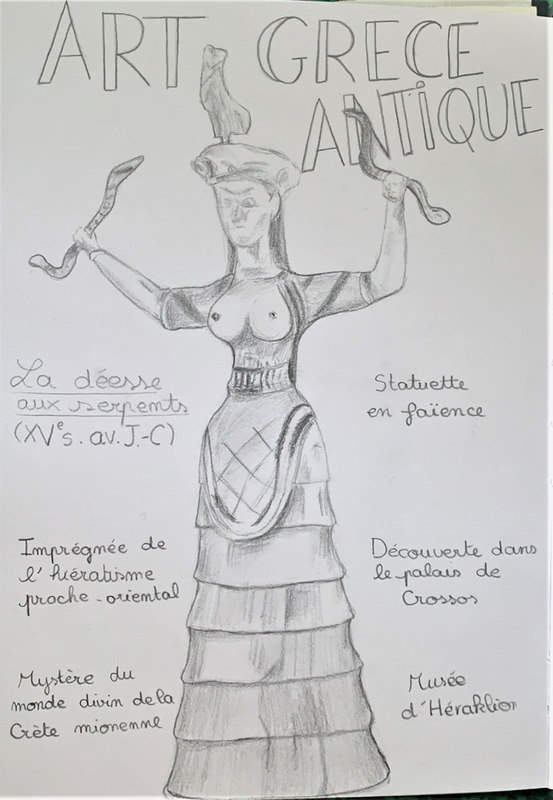 ART GRECE
ANTiQUE
La déesse
aux serpents
(XVe s. av. J.-C)
Statuette
en faïence
Imprégnée de
l'hiératisme
proche-oriental
Découverte dans
le palais de
Crossos
Mystère du
monde divin de la
Crète mionenne
Musée
d'Héraklion